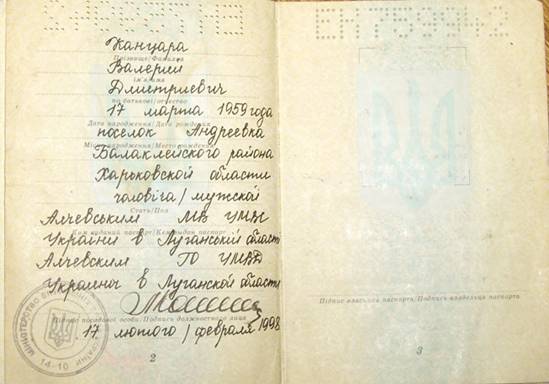 Канцара
Прізвище/Фамилия
Валерий
ім'я/имя
Дмитриевич
по батькові/отчество
17 марта 1959 года
Дата народження/Дата рождения
поселок Андреевка
Місце народження/Место рождения
Балаклейского района
Харьковской области
чоловіча/мужской
Стать/Пол
Алчевським МВ УМВС
Ким виданий паспорт/Кем выдан паспорт
України в Луганській області
Алчевским ГО УМВД
Украины в Луганской области
Підпис посадової особи/Подпись должностного лица
17 лютого/февраля 1998
МІНІСТЕРСТВО ВНУТРІШНІХ УКРАЇНИ
14-10
2
ЕН 759042
Підпис власника паспорта/Подпись владельца паспорта
3